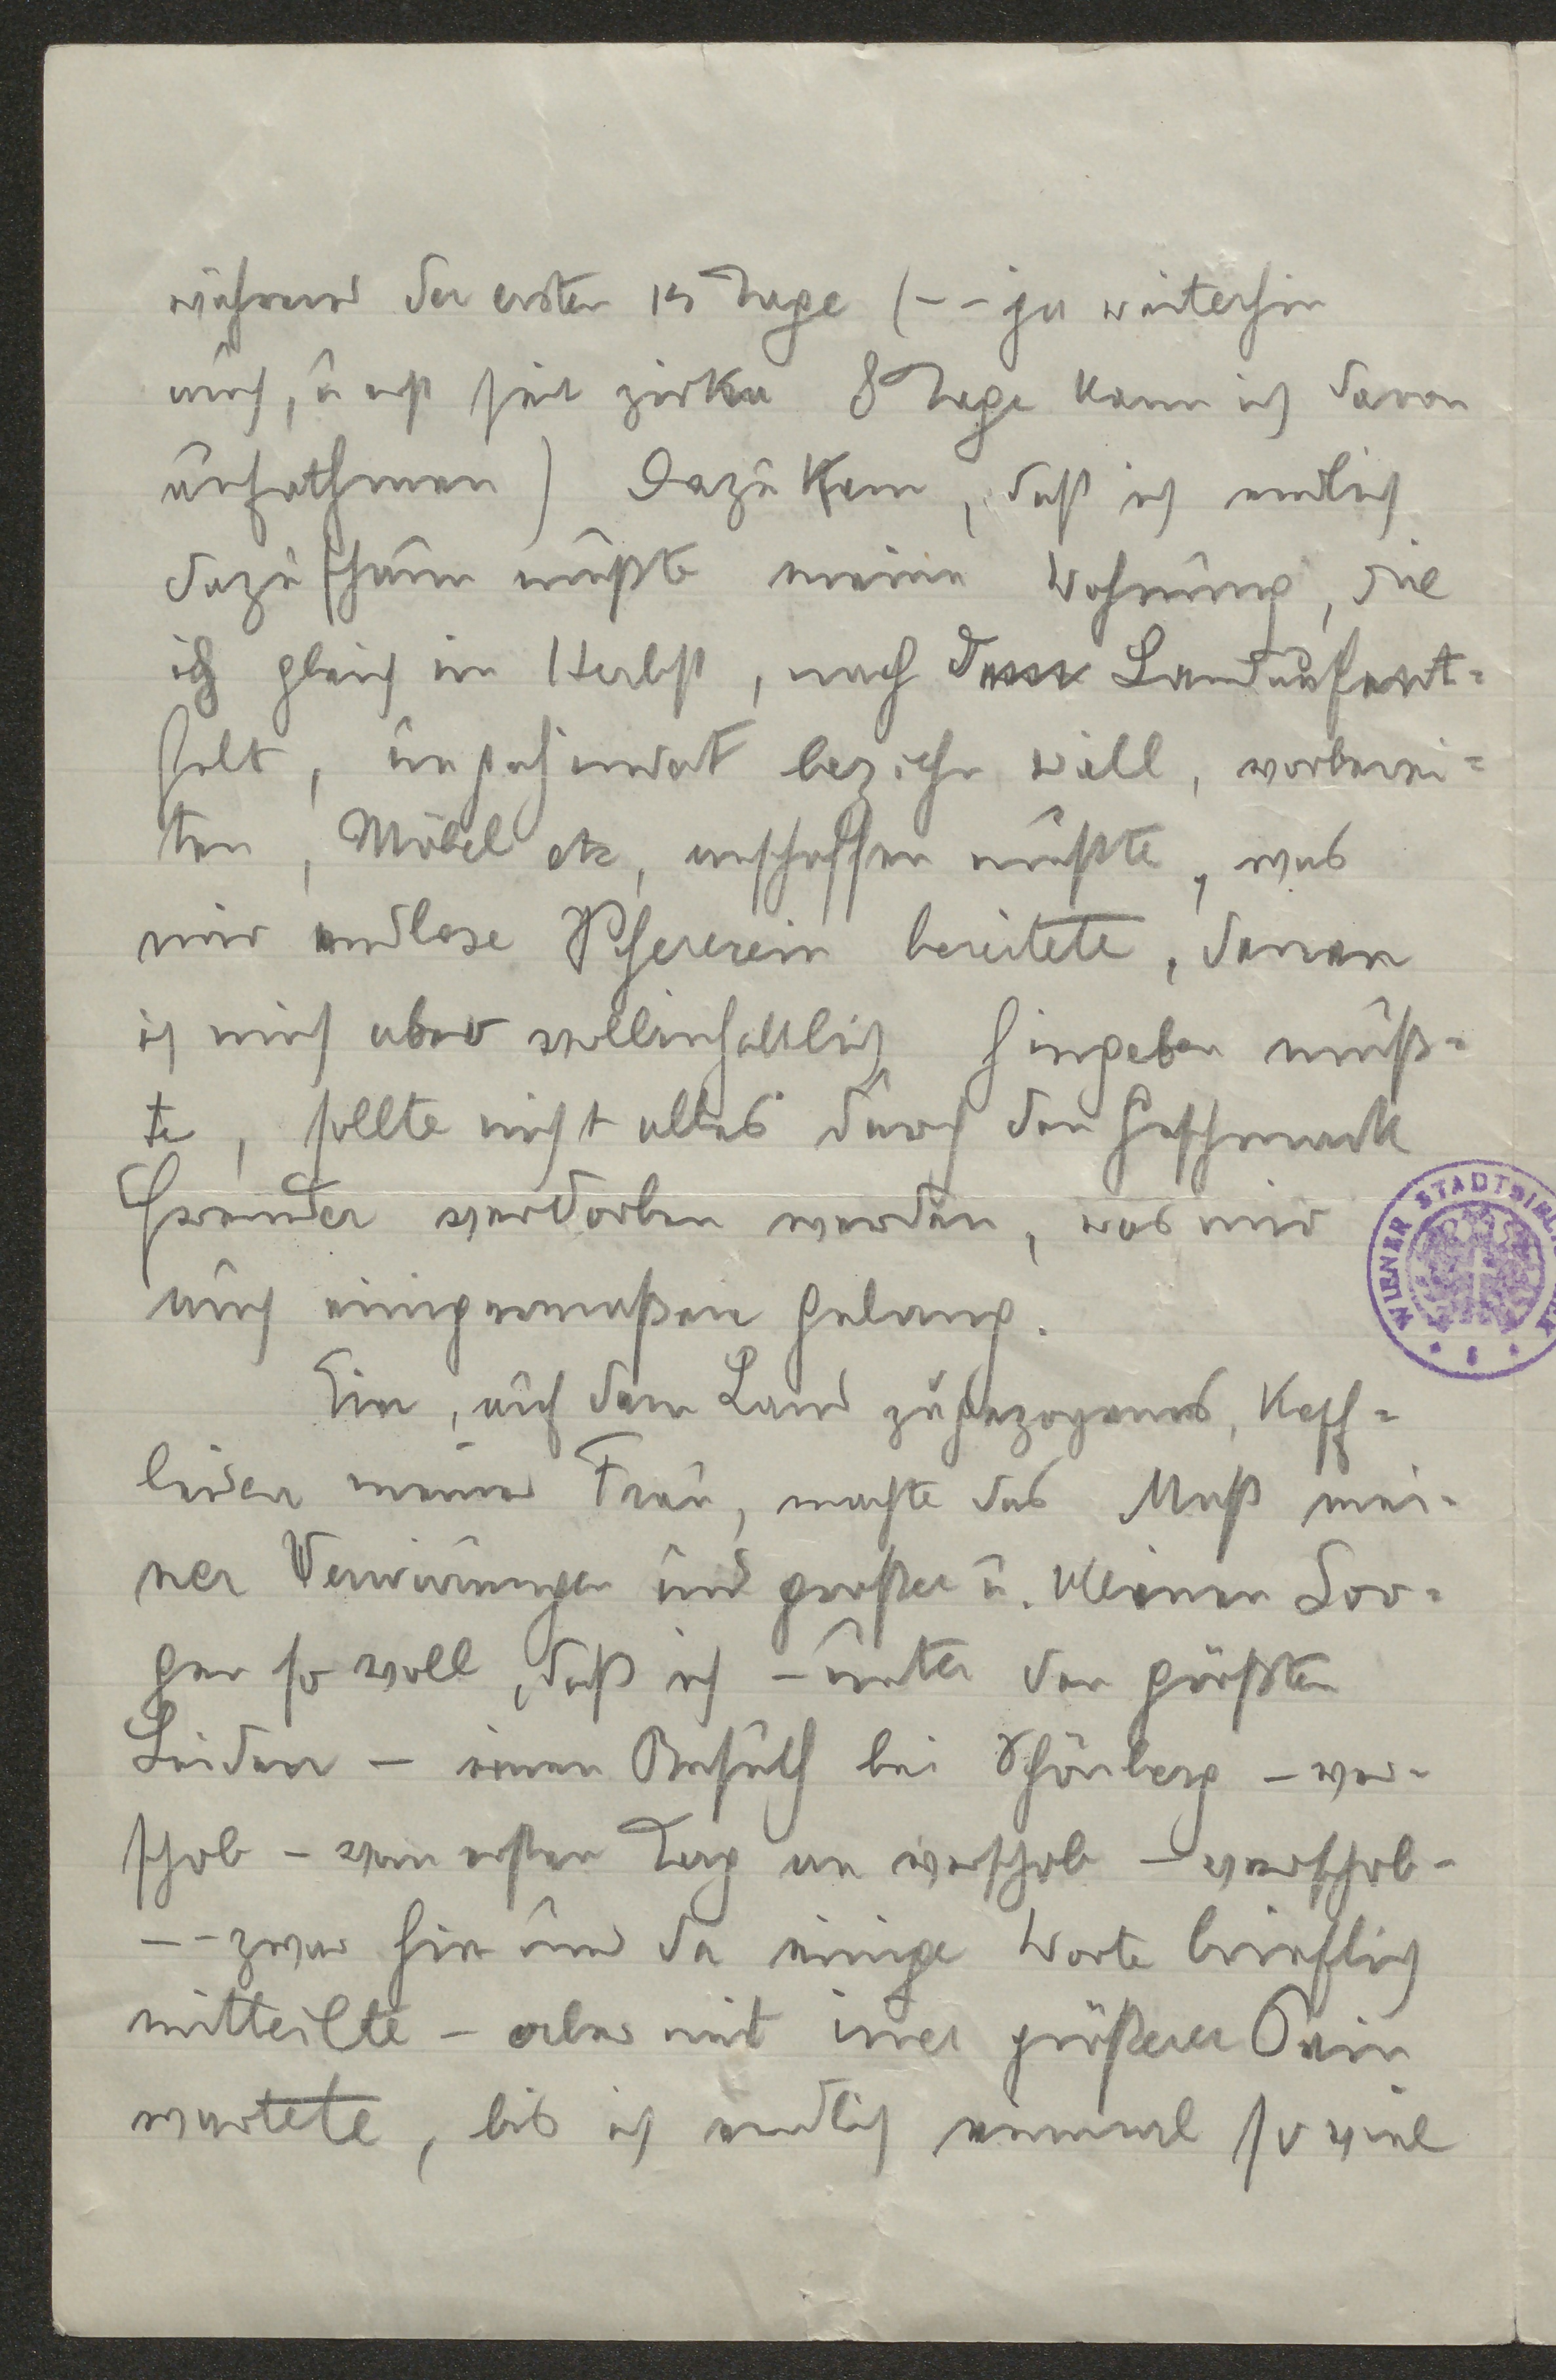 während der ersten 14 Tage (-- ja weiterhin
auch, u erst seit zirka 8 Tage kann ich davon
aufathmen) Dazu kam, daß ich endlich
dazuschaun mußte meine Wohnung, die
ich gleich im Herbst, nach dem Landaufent=
halt, ungehindert beziehn will, vorberei=
ten, Möbel etz, anschaffen mußte, was
mir endlose Scherereien bereitete, denen
ich mich aber vollinhaltlich hingeben muß=
te, sollte nicht alles durch den Geschmack
Fremder verdorben werden, was mir
auch einigermaßen gelang.
Ein, auf dem Land zugezogenes, Kopf=
leiden meiner Frau, machte das Maß mei=
ner Verwirrungen und großer u. kleiner Sor=
gen so voll, daß ich - unter den größten
Leiden - einen Besuch bei Schönberg - ver=
schob - vom ersten Tag an verschob - verschob -
-- zwar hie und da einige Worte brieflich
mitteilte - aber mit imer größerer Pein
wartete, bis ich endlich einmal so viel
WIENER STADTBIBL